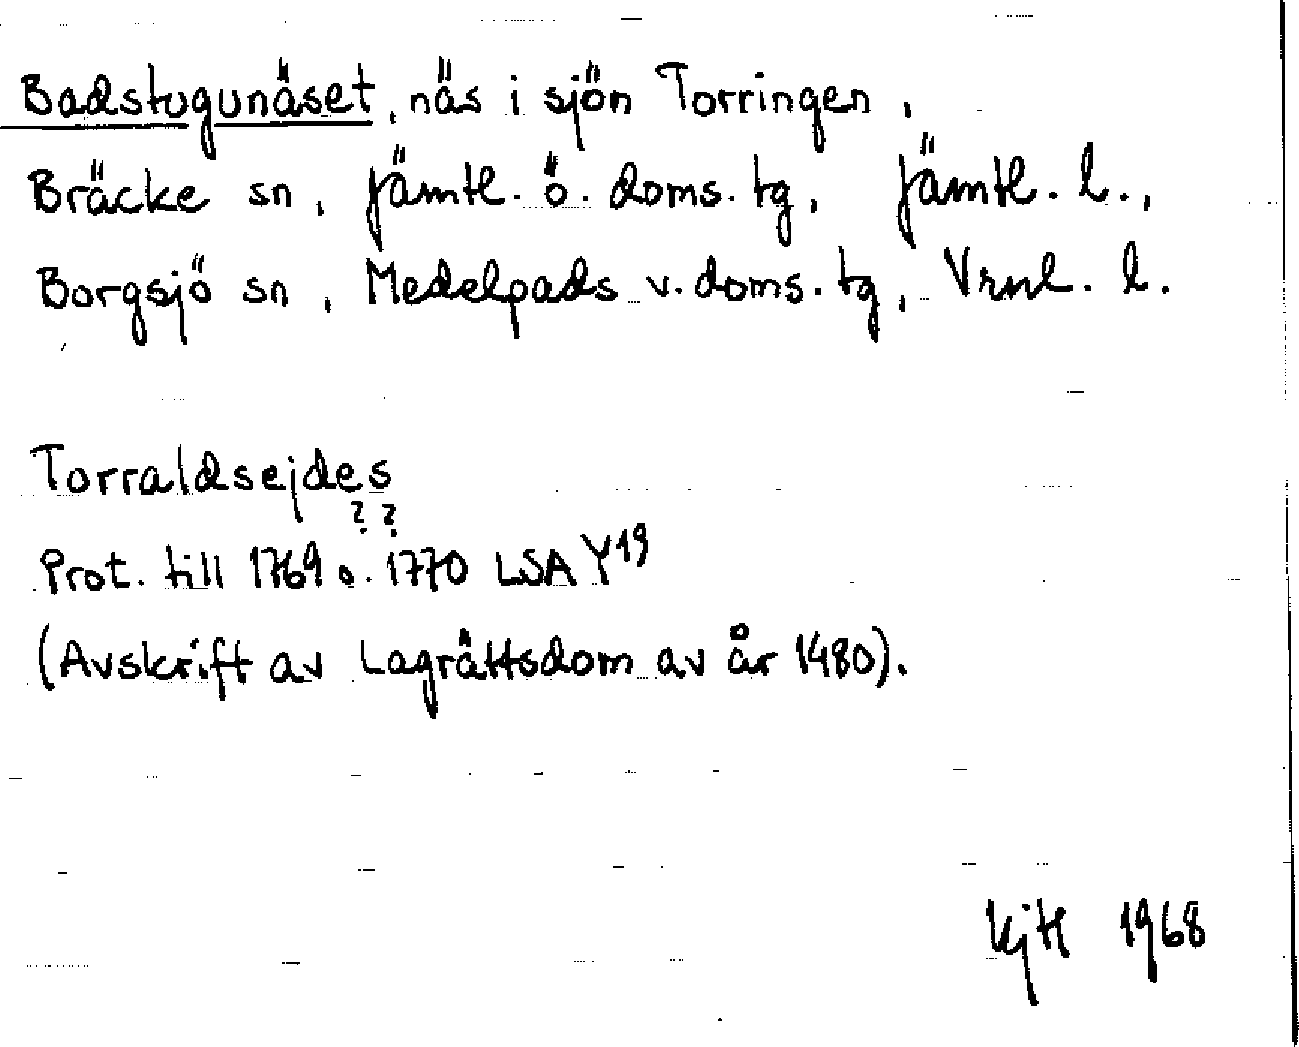 Badstugunäset, näs i sjön Torringen,
Bräcke sn, Jämtl. ö. doms. tg, Jämtl. l.,
Borgsjö sn, Medelpads v. doms. tg, Vrnl. l.
Torraldsejdes
? ?
Prot. till 1769 o. 1770 LSA Y19
(Avskrift av Lagrättsdom av år 1480).
1968